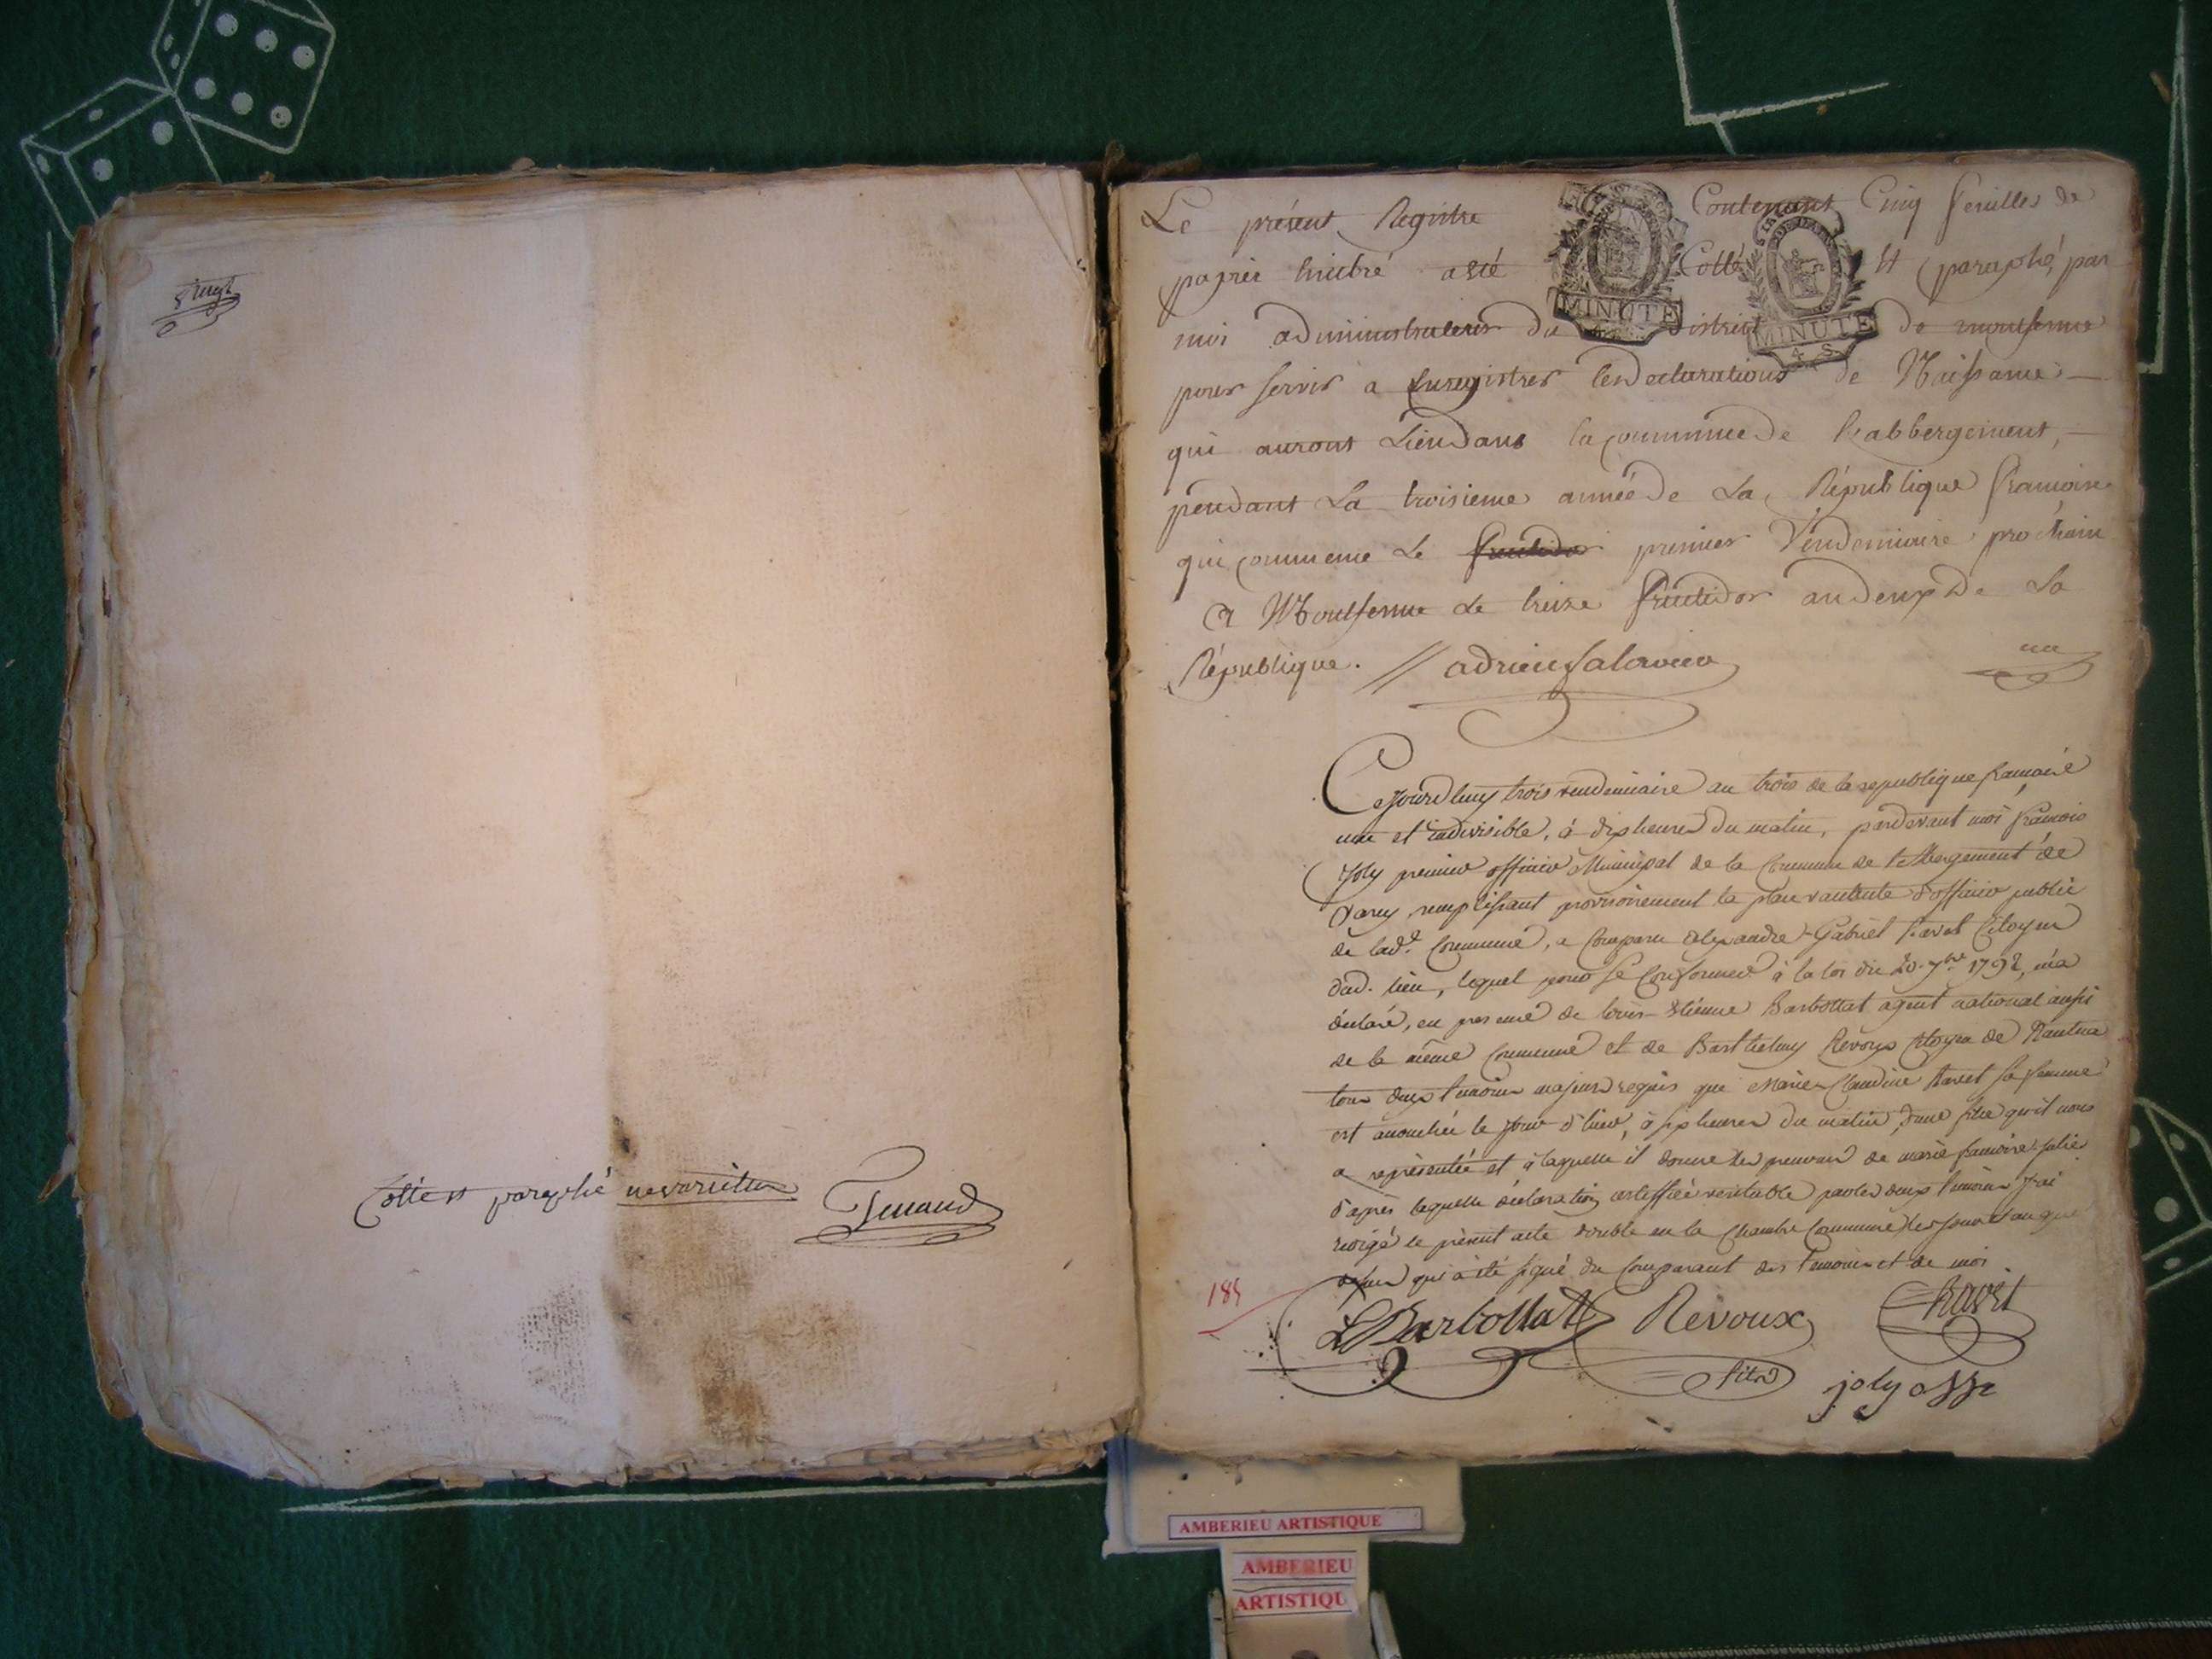 vingt
Cotté et paraphé ne varietur
Le présent Registre Contenant Cinq feuilles de
papier timbré a été Cotté Et paraphé, par
MINUTE
MINUTE
4 S
moi administrateur du District de montferme
pour servir a Enregistrer les Declarations de Naissance
qui auront Lieu dans la commune de L'abbergement,
pendant La troisieme année de La République françoise
qui commence Le fructidor premier Vendemiaire prochain
A Montferme Le treize fructidor an deux De La
République. // adrien Salavin
un
Cejourdhuy trois vendemiaire an trois de la republique francoise
une et indivisible, à dix heures du matin, pardevant moi francois
Joly premier officier Municipal de la Commune de l'Abergement de
Varey, remplissant provisoirement la place vacante d'officier public
de lad.e Commune, a Comparu Alexandre-Gabriel Ravet Citoyen
dud. lieu, lequel pour se Conformer à la loi du 20. 7bre 1792, m'a
déclaré, en presence de Louis-Etienne Barbollat agent national aussi
de la même Commune et de Barthelemy Revoux Citoyen de Nantua
tous deux temoins majeurs requis que Marie-Claudine Ravet sa femme
est accouchée le jour d'hier, à six heures du matin, d'une fille qu'il nous
a représentée et à laquelle il donne les prenoms de marie francoise julie
d'après laquelle déclaration certiffiée veritable par les deux temoins j'ai
redigé le présent acte double en la Chambre Commune les jour et an que
dessus qui a été signé du Comparant des temoins et de moi.
185
LBarbollat Revoux Ravet
joly off
AMBERIEU ARTISTIQUE
AMBERIEU
ARTISTIQU